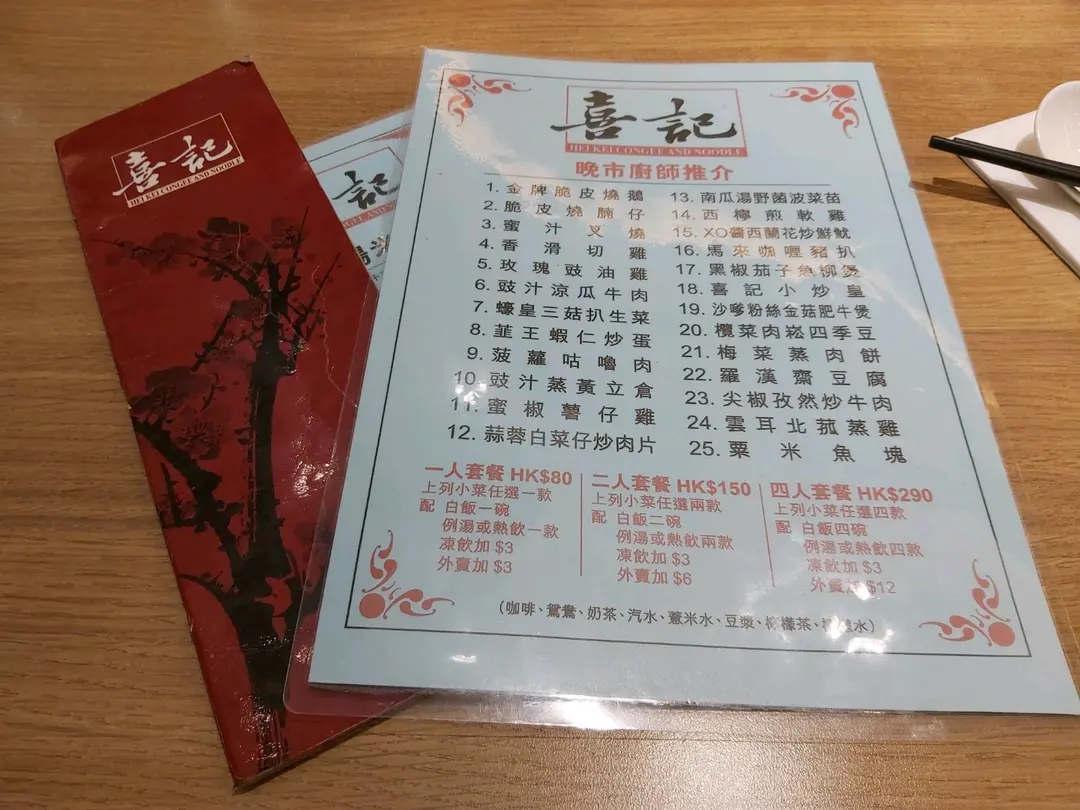 喜記
HEI KEI CONGEE AND NOODLE
記
喜記
HEI KEI CONGEE AND NOODLE
晚市廚師推介
1. 金牌脆皮燒鵝
2. 脆皮燒腩仔
3. 蜜汁叉燒
4. 香滑切雞
5. 玫瑰豉油雞
6. 豉汁涼瓜牛肉
7. 蠔皇三菇扒生菜
8. 韮王蝦仁炒蛋
9. 菠蘿咕嚕肉
10. 豉汁蒸黃立倉
11. 蜜椒薯仔雞
12. 蒜蓉白菜仔炒肉片
13. 南瓜湯野菌波菜苗
14. 西檸煎軟雞
15. XO醬西蘭花炒鮮魷
16. 馬來咖喱豬扒
17. 黑椒茄子魚柳煲
18. 喜記小炒皇
19. 沙嗲粉絲金菇肥牛煲
20. 欖菜肉崧四季豆
21. 梅菜蒸肉餅
22. 羅漢齋豆腐
23. 尖椒孜然炒牛肉
24. 雲耳北菰蒸雞
25. 粟米魚塊
一人套餐 HK$80
上列小菜任選一款
配 白飯一碗
例湯或熱飲一款
凍飲加 $3
外賣加 $3
二人套餐 HK$150
上列小菜任選兩款
配 白飯二碗
例湯或熱飲兩款
凍飲加 $3
外賣加 $6
四人套餐 HK$290
上列小菜任選四款
配 白飯四碗
例湯或熱飲四款
凍飲加 $3
外賣加 $12
(咖啡、鴛鴦、奶茶、汽水、薏米水、豆漿、檸檬茶、檸檬水)